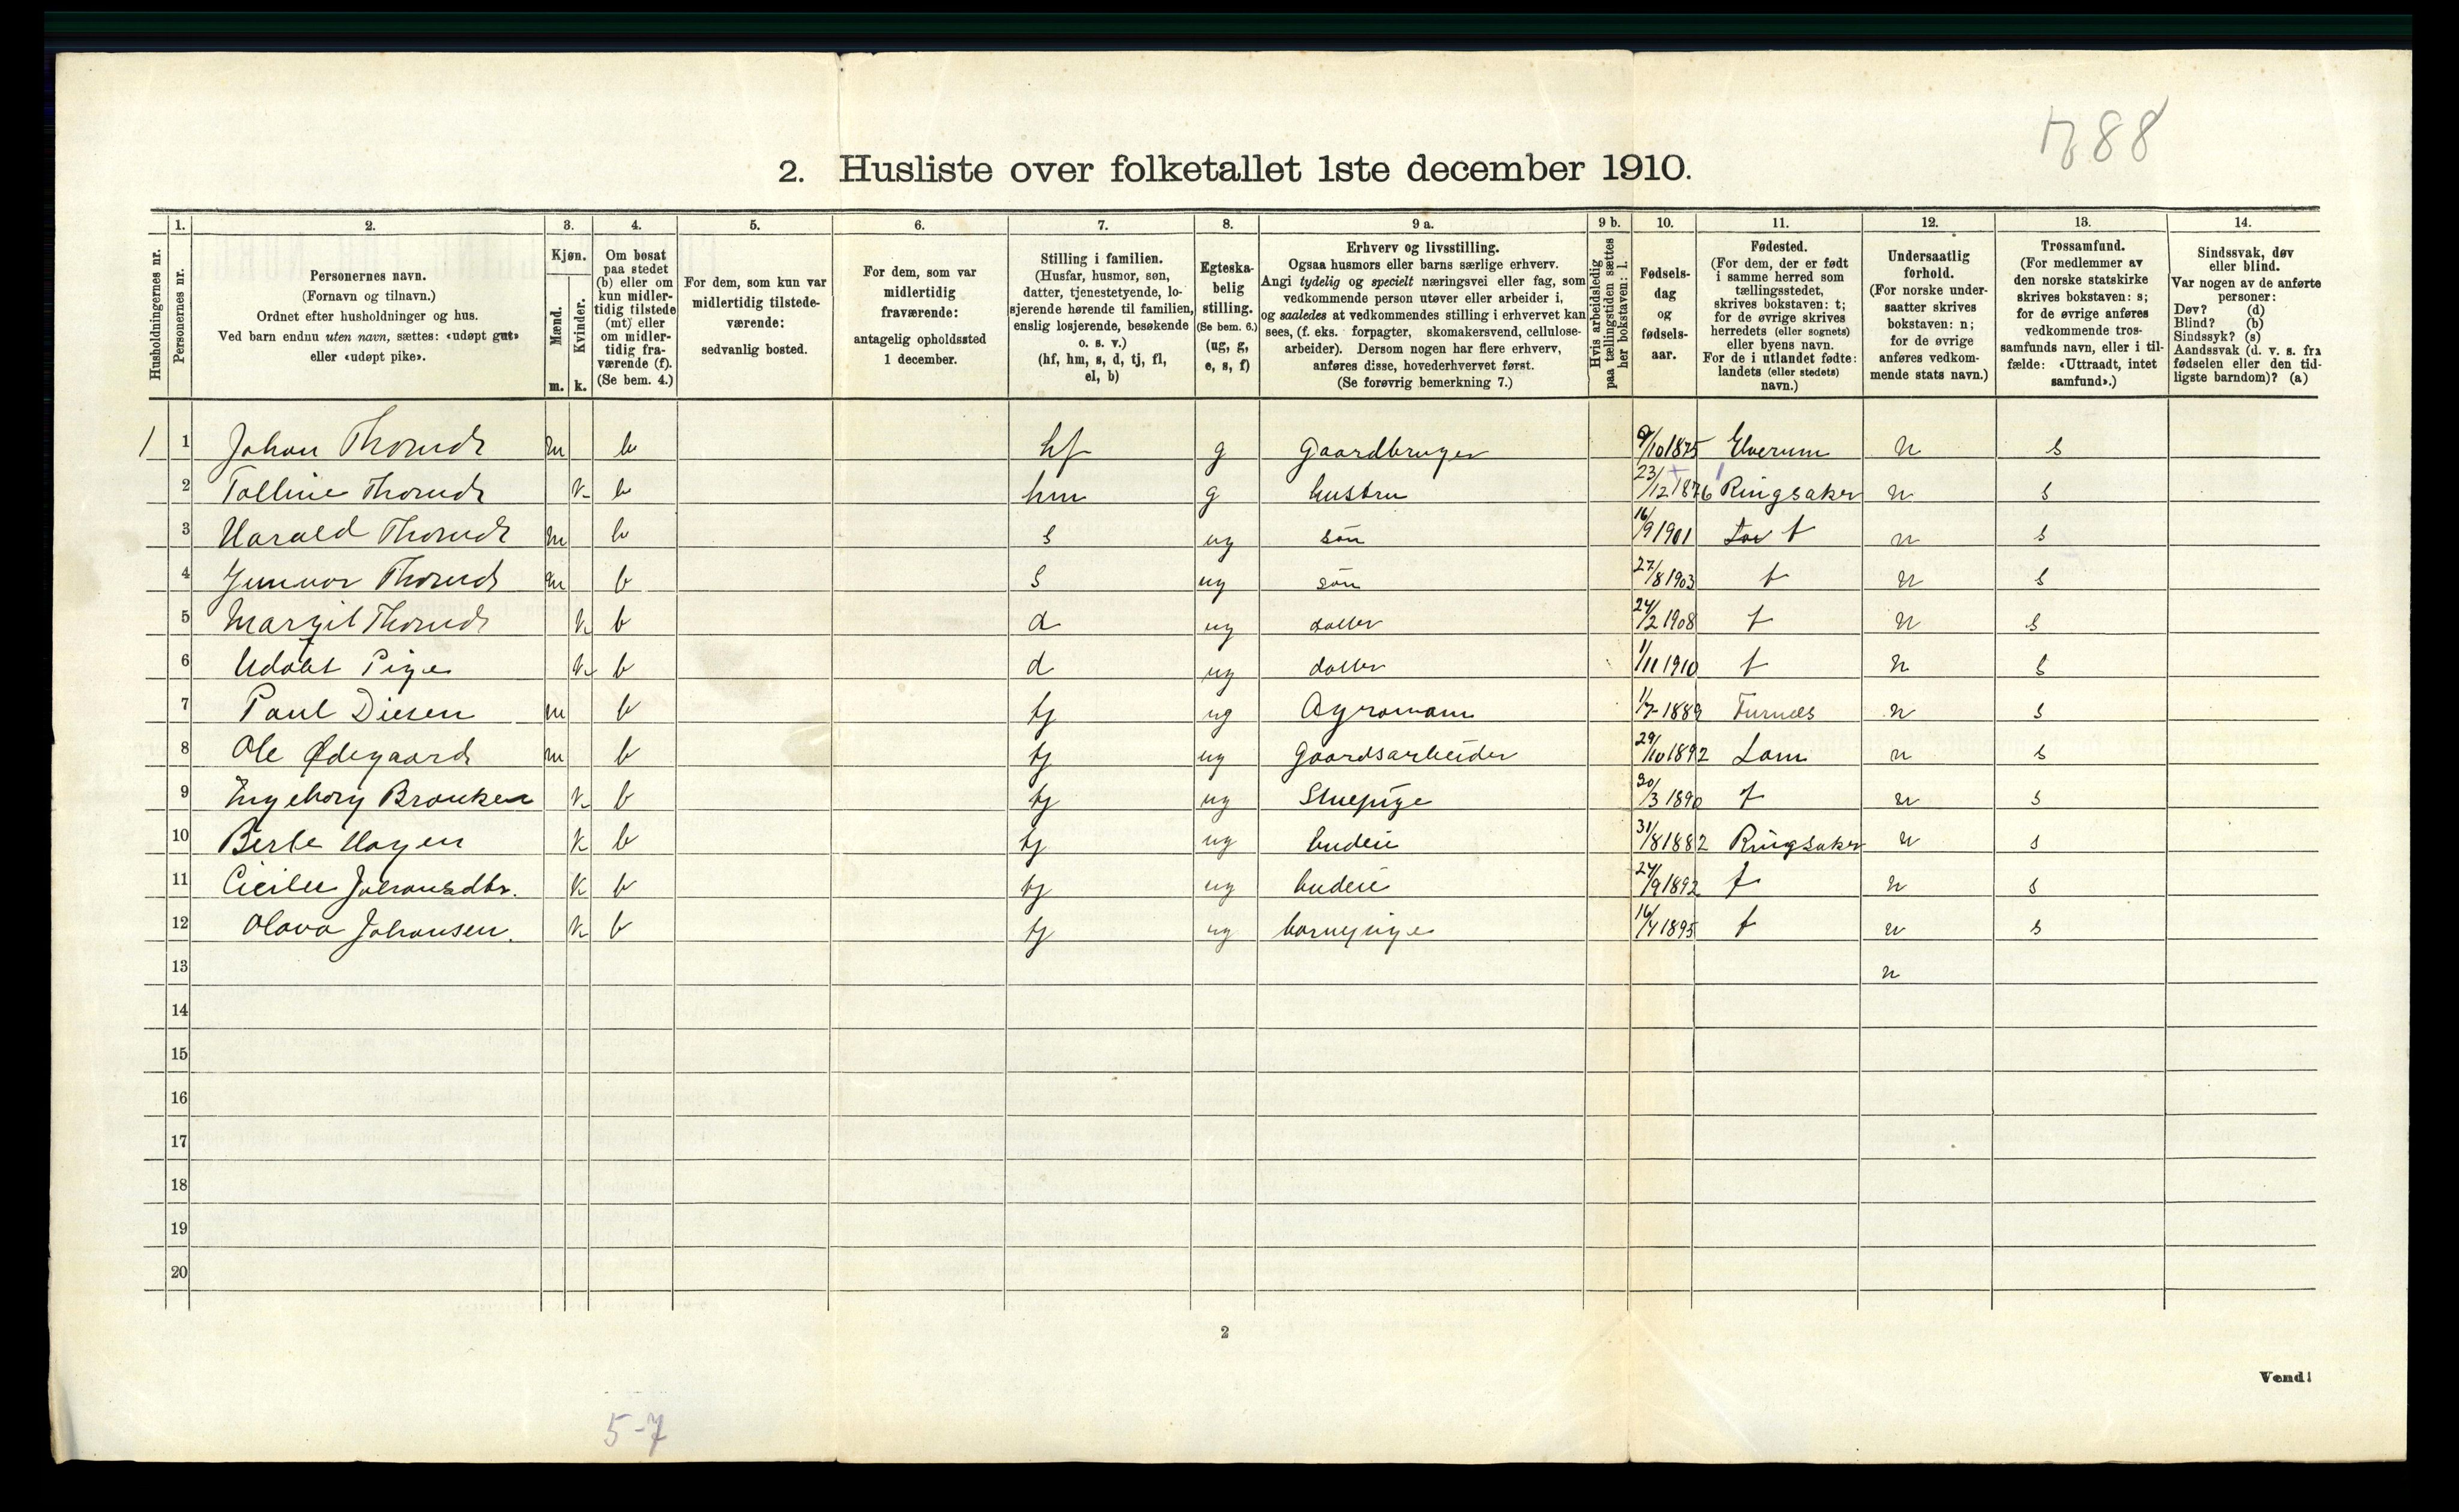 1788
2. Husliste over folketallet 1ste december 1910.
Husholdningernes nr.
1. Personernes nr.
2. Personernes navn. (Fornavn og tilnavn.) Ordnet efter husholdninger og hus. Ved barn endnu uten navn, sættes: «udøpt gut» eller «udøpt pike».
3. Kjøn. Mænd. m. Kvinder. k.
4. Om bosat paa stedet (b) eller om kun midlertidig tilstede (mt) eller om midlertidig fraværende (f). (Se bem. 4.)
5. For dem, som kun var midlertidig tilstedeværende: sedvanlig bosted.
6. For dem, som var midlertidig fraværende: antagelig opholdssted 1 december.
7. Stilling i familien. (Husfar, husmor, søn, datter, tjenestetyende, losjerende hørende til familien, enslig losjerende, besøkende o. s. v.) (hf, hm, s, d, tj, fl, el, b)
8. Egteskabelig stilling. (Se bem. 6.) (ug, g, e, s, f)
9 a. Erhverv og livsstilling. Ogsaa husmors eller barns særlige erhverv. Angi tydelig og specielt næringsvei eller fag, som vedkommende person utøver eller arbeider i, og saaledes at vedkommendes stilling i erhvervet kan sees, (f. eks. forpagter, skomakersvend, cellulosearbeider). Dersom nogen har flere erhverv, anføres disse, hovederhvervet først. (Se forøvrig bemerkning 7.)
9 b. Hvis arbeidsledig paa tællingstiden sættes her bokstaven: l.
10. Fødselsdag og fødselsaar.
11. Fødested. (For dem, der er født i samme herred som tællingsstedet, skrives bokstaven: t; for de øvrige skrives herredets (eller sognets) eller byens navn. For de i utlandet fødte: landets (eller stedets) navn.)
12. Undersaatlig forhold. (For norske undersaatter skrives bokstaven: n; for de øvrige anføres vedkommende stats navn.)
13. Trossamfund. (For medlemmer av den norske statskirke skrives bokstaven: s; for de øvrige anføres vedkommende trossamfunds navn, eller i tilfælde: «Uttraadt, intet samfund».)
14. Sindssvak, døv eller blind. Var nogen av de anførte personer: Døv? (d) Blind? (b) Sindssyk? (s) Aandssvak (d. v. s. fra fødselen eller den tidligste barndom)? (a)
1 1 Johan Thorud m b hf g Gaardbruger 9/10 1875 Elverum n s
2 Talline Thorud k b hm g hustru 23/12 1876 Ringsaker n s
3 Harald Thorud m b s ug søn 16/9 1901 t n s
4 Gunnar Thorud m b s ug søn 27/8 1903 t n s
5 Margit Thorud k b d ug datter 24/2 1908 t n s
6 Udøbt Pige k b d ug datter 1/11 1910 t n s
7 Paul Diesen m b tj ug Agronom 1/7 1889 Furnes n s
8 Ole Ødegaard m b tj ug Gaardsarbeider 29/10 1892 Lom n s
9 Ingeborg Brouken k b tj ug Stuepige 30/3 1890 t n s
10 Berte Hagen k b tj ug budeie 31/8 1882 Ringsaker n s
11 Cicilie Johansdtr. k b tj ug budeie 24/9 1892 t n s
12 Olava Johansen. k b tj ug barnepige 16/4 1895 t n s
13 n
14
15
16
17
18
19
20
2
Vend!
5-7